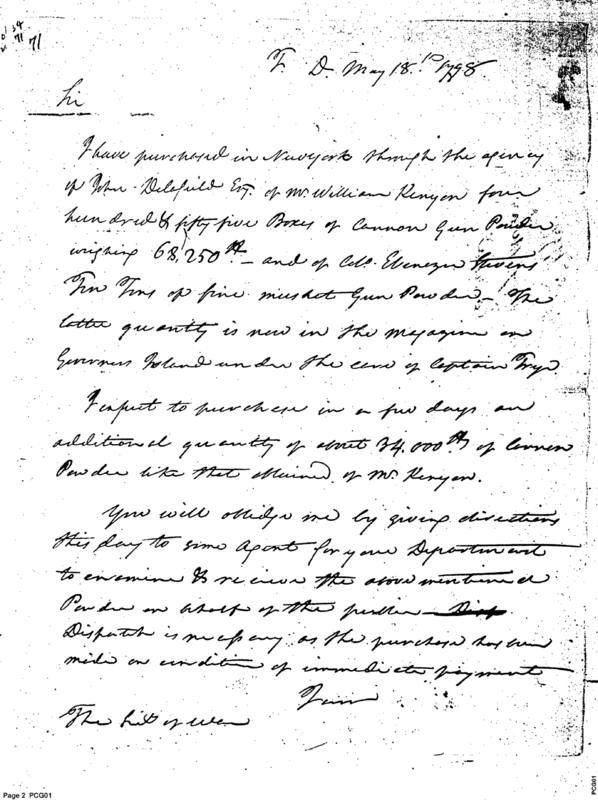 71
T. D. May 18.th 1798.
Sir
I have purchased in Newyork through the agency
of John Delafield Esq. of Mr. William Kenyon four
hundred & fifty five Boxes of Cannon Gun Powder
weighing 68,250 lb – and of Col. Ebenezer Stevens
Ten Tons of fine musket Gun Powder – The
latter quantity is now in the magazine on
Governors Island under the care of Captain Frye
I expect to purchase in a few days an
additional quantity of about 34,000 lb of Cannon
Powder like that obtained of Mr. Kenyon.
You will oblidge me by giving directions
this day to some Agent for your Department
to examine & receive the above mentioned
Powder on behalf of the public
Dispatch is necessary as the purchase has been
made on condition of immediate payment
I am
The Sect of War
Page 2 PCG01
PCG01